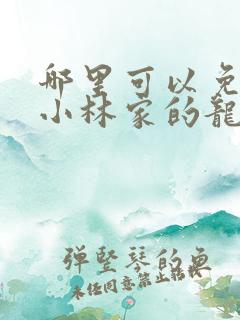 哪里可以免
小林家的龍
弹竖琴的鱼
未经同意禁止转载